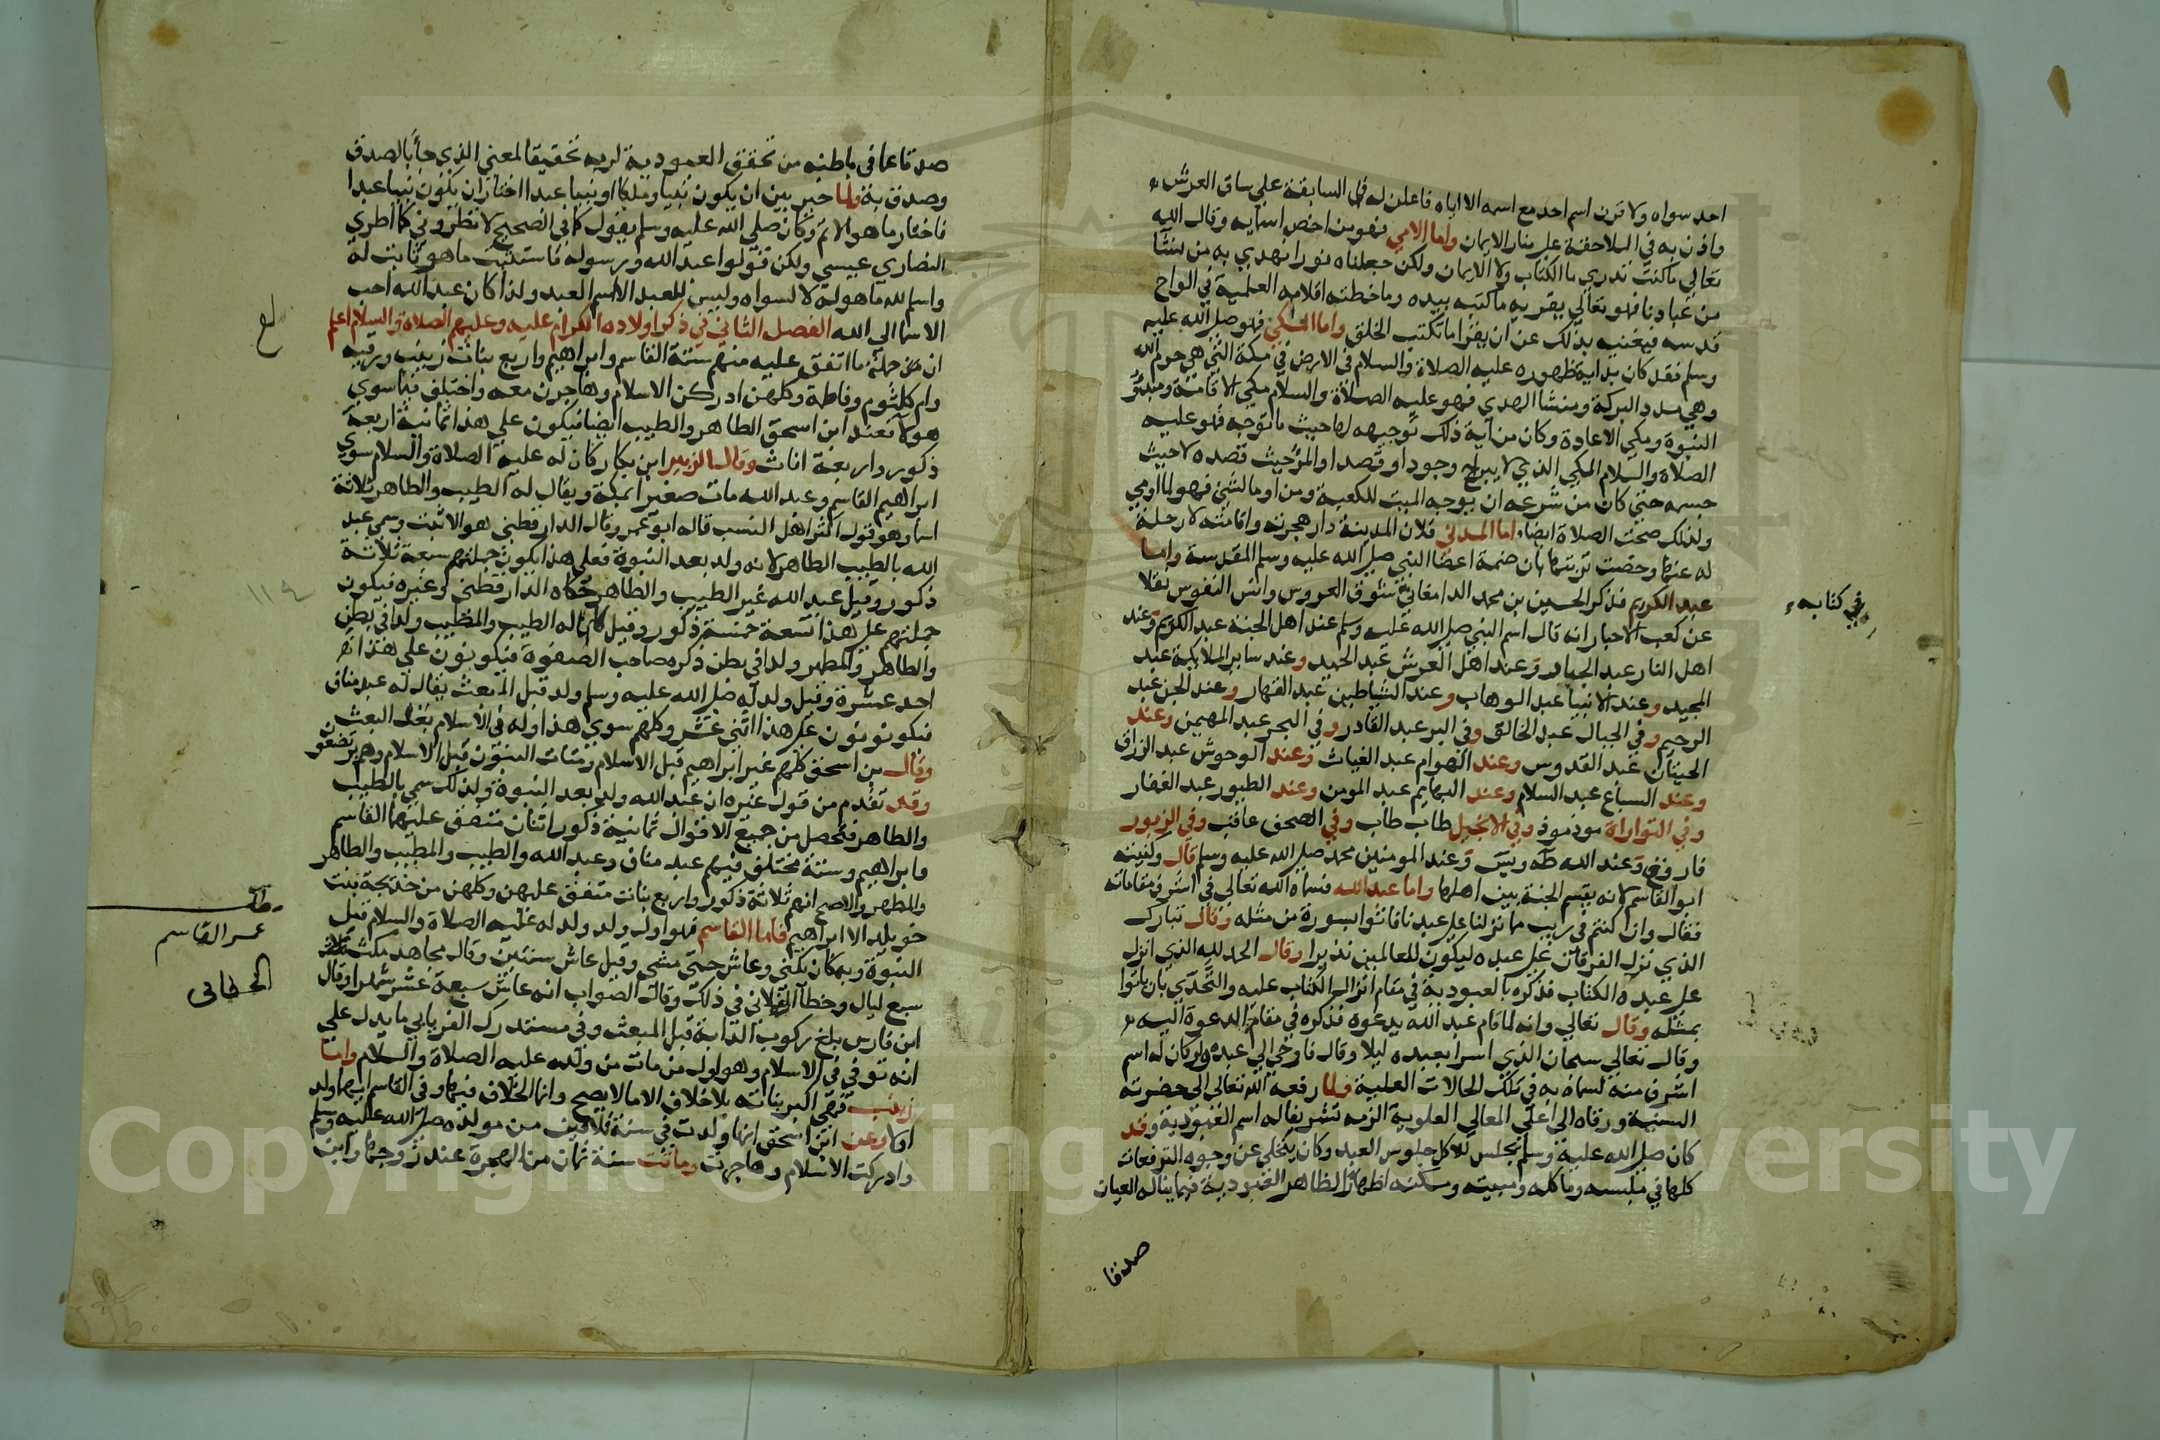 احد سواه ولا قرن اسم احد مع اسمه الا اياه فاعلن له في السابقة علي ساق العرش
واذن به في اللاحقة علي منار الايمان واما الامي فهو من اخص اسمايه وقال الله
تعالي ما كنت تدري ما الكتاب ولا الايمان ولكن جعلناه نورا نهدي به من نشا
من عبادنا فهو تعالي يقريه ما كتبه بيده وما خطته اقلامه العلمية في الواح
قدسه فيغنيه بذلك عن ان يقرا ما تكتب الخلق واما المكي فهو صلي الله عليه
وسلم فقد كان بداية ظهوره عليه الصلاة والسلام في الارض في مكة التي هي حرم الله
وهي مدد البركة ومنشا الهدي فهو عليه الصلاة والسلام مكي الاقامة ومبدؤ
النبوة ومكي الاعادة وكان من آية ذلك توجيهه لها حيث ما توجه فهو عليه
الصلاة والسلام المكي الذي لا يبرح وجودا وقصدا والمرء حيث قصده لا حيث
جسمه حتي كان من شرعه ان يوجه الميت للكعبة ومن اوما لشي فهو لما اومي
ولذلك صحت الصلاة ايضا اما المدني فلان المدينة دار هجرته واقامته لا رحلة
له عنها وخصت تربتها بان ضمت اعضا النبي صلي الله عليه وسلم المقدسة واما
عبد الكريم فذكر الحسين بن محمد الدامغاني شوق العروس وانس النفوس نقلا
في كتابه
عن كعب الاحبار انه قال اسم النبي صلي الله عليه وسلم عند اهل الجنة عبد الكريم وعند
اهل النار عبد الجبار وعند اهل العرش عبد الحميد وعند ساير الملايكة عبد
المجيد وعند الانبيا عبد الوهاب وعند الشياطين عبد القهار وعند الجن عبد
الرحيم وفي الجبال عبد الخالق وفي البر عبد القادر وفي البحر عبد المهيمن وعند
الحيتان عبد القدوس وعند الهوام عبد الغياث وعند الوحوش عبد الرزاق
وعند السباع عبد السلام وعند البهايم عبد المومن وعند الطيور عبد الغفار
وفي التوراة موذ موذ وفي الانجيل طاب طاب وفي الصحف عاقب وفي الزبور
فاروق وعند الله طه ويس وعند المومنين محمد صلي الله عليه وسلم قال وكنيته
ابو القاسم لانه يقسم الجنة بين اهلها واما عبد الله فسماه الله تعالي في اشرف مقاماته
فقال وان كنتم في ريب مما نزلنا علي عبدنا فاتوا بسورة من مثله وقال تبارك
الذي نزل الفرقان علي عبده ليكون للعالمين نذيرا وقال الحمد لله الذي انزل
علي عبده الكتاب فذكره بالعبودية في مقام انزال الكتاب عليه والتحدي بان ياتوا
بمثله وقال تعالي وانه لما قام عبد الله يدعوه فذكره في مقام الدعوة اليه
وقال تعالي سبحان الذي اسرا بعبده ليلا وقال فاوحي الي عبده ولو كان له اسم
اشرف منه لسماه به في تلك الحالات العلية ولما رفعه الله تعالي الي حضرته
السنية ورقاه الي اعلي المعالي العلوية الزمه تشريفا له اسم العبودية وقد
كان صلي الله عليه وسلم يجلس للاكل جلوس العبد وكان يتخلي عن وجوه الترفعات
كلها في ملبسه وماكله ومبيته ومسكنه اظهارا لظاهر العبودية فيما يناله العيان
صدقا
صدقا عما في باطنه من تحقق العبودية لربه تحقيقا لمعني الذي جا بالصدق
وصدق به ولما خير بين ان يكون نبيا ملكا او نبيا عبدا اختار ان يكون نبيا عبدا
فاختار ما هو الاتم وكان صلي الله عليه وسلم يقول كما في الصحيح لا تطروني كما اطري
النصاري عيسي ولكن قولوا عبد الله ورسوله فاستثبت ما هو ثابت له
واسم لله ما هو له لا لسواه وليس للعبد الا اسم العبد ولذا كان عبد الله احب
الاسما الي الله الفصل الثاني في ذكر اولاده الكرام عليه وعليهم الصلاة والسلام اعلم
ان من جملة ما اتفق عليه منهم ستة القاسم وابراهيم واربع بنات زينب ورقيه
وام كلثوم وفاطمة وكلهن ادركن الاسلام وهاجرن معه واختلف فيما سوي
هولا فعند ابن اسحق الطاهر والطيب ايضا فيكون علي هذا ثمانية اربعة
ذكور واربعة اناث وقال الزبير ابن بكار كان له عليه الصلاة والسلام سوي
ابراهيم القاسم وعبد الله مات صغيرا بمكة ويقال له الطيب والطاهر ثلاثة
اسما وهو قول اكثر اهل النسب قاله ابو عمر وقال الدارقطني هو الاثبت وسمي عبد
الله بالطيب الطاهر لانه ولد بعد النبوة فعلي هذا يكون جملتهم سبعة ثلاثة
ذكور وقيل عبد الله غير الطيب والطاهر حكاه الدارقطني وغيره فيكون
جملتهم علي هذا تسعة خمسة ذكور وقيل كان له الطيب والمطيب ولدا في بطن
والطاهر والمطهر ولدا في بطن ذكره صاحب الصفوة فيكونون علي هذا
احد عشرة وقيل ولد له صلي الله عليه وسلم ولد قبل المبعث يقال له عبد مناف
فيكونون علي هذا اثني عشر وكلهم سوي هذا ولد في الاسلام بعد البعث
وقال بن اسحق كلهم غير ابراهيم قبل الاسلام ومات البنون قبل الاسلام وهم يرتضعون
وقد تقدم من قول غيره ان عبد الله ولد بعد النبوة ولذلك سمي بالطيب
والطاهر فتحصل من جميع الاقوال ثمانية ذكور اثنان متفق عليهما القاسم
وابراهيم وستة مختلف فيهم عبد مناف وعبد الله والطيب والمطيب والطاهر
والمطهر والاصح انهم ثلاثة ذكور واربع بنات متفق عليهن وكلهن من خديجة بنت
خويلد الا ابراهيم فاما القاسم فهو اول ولد ولد له عليه الصلاة والسلام قبل
النبوة وبه كان يكني وعاش حتي مشي وقيل عاش سنتين وقال مجاهد مكث
سبع ليال وخطا الغلابي في ذلك وقال الصواب انه عاش سبعة عشر شهرا وقال
ابن فارس بلغ ركوب الدابة قبل المبعث وفي مستدرك الفريابي ما يدل علي
انه توفي في الاسلام وهو اول من مات من ولده عليه الصلاة والسلام واما
زينب فهي اكبر بناته بلا خلاف الا ما لا يصح وانما الخلاف فيها وفي القاسم ايهما ولد
اولا وعن ابن اسحق انها ولدت في سنة ثلاثين من مولده صلي الله عليه وسلم
وادركت الاسلام وهاجرت وماتت سنة ثمان من الهجرة عند زوجها وابن
بلغ
١١٤
مطلب
عمر القاسم
Copyright © King Saud University